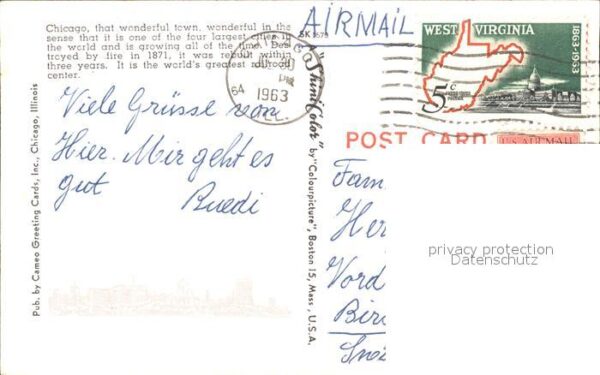 Chicago, that wonderful town, wonderful in the
sense that it is one of the four largest cities in
the world and is growing all of the time. Des-
troyed by fire in 1871, it was rebuilt within
three years. It is the world's greatest railroad
center.
Viele Grüsse von
Hier. Mir geht es
gut
Ruedi
Pub. by Cameo Greeting Cards, Inc., Chicago, Illinois
SK
"ThiniColor" by "Colourpicture", Boston 15, Mass., U.S.A.
AIRMAIL
WEST VIRGINIA
1863-1963
5c
64
PM
1963
ILL.
POST CARD
U.S. AIR MAIL
Fam
Her
Vord
Bir
privacy protection
Datenschutz